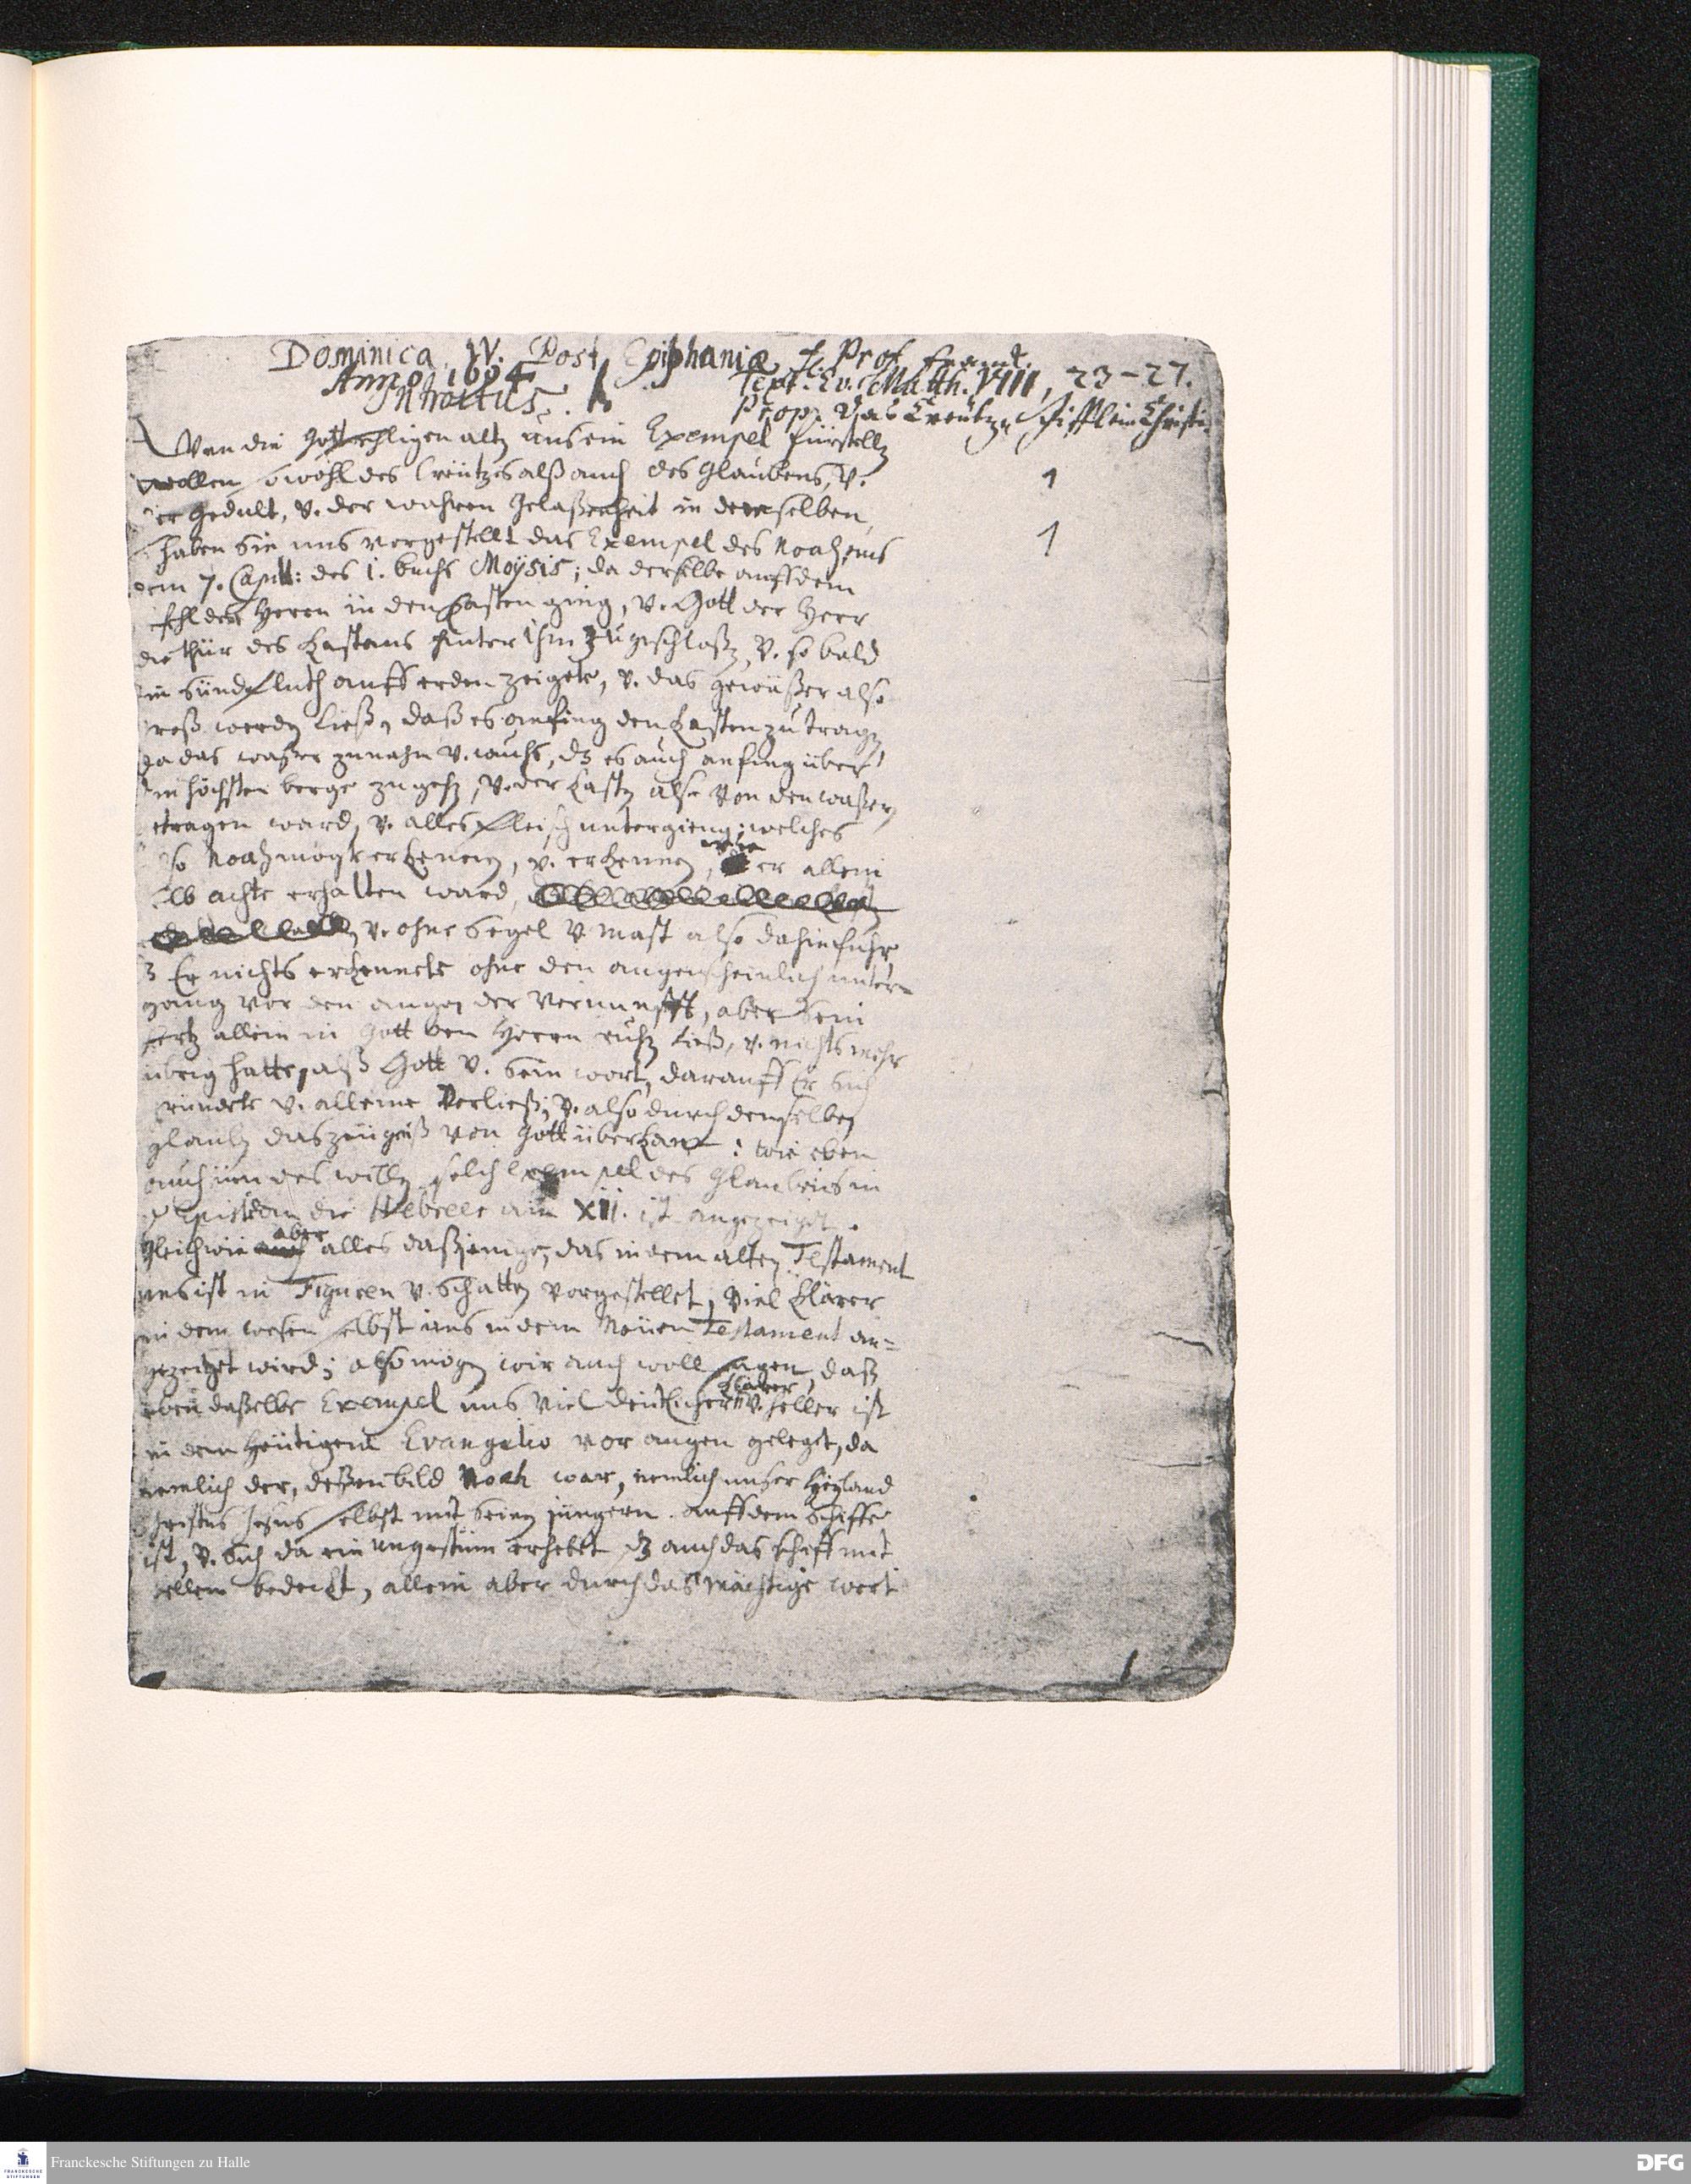 Dominica IV. Post Epiphaniæ H. Prof. Franck.
Anno 1694 Text. Ev. Matth. VIII, 23-27.
Introitus. Prop. Das Creutz-Schifflein Christi.
Wan die Gottseeligen altz uns ein Exempel fürstellz
wollen sowohl des Creützes alß auch des Glaubens, v. 1
er gedult, v. der wahren gelaßenheit in denselben,
haben Sie uns vorgestellt das Exempel des Noah, aus 1
dem 7. Capitt: des 1. buchs Moÿsis; da derselbe auff dem
fehl des Herrn in den Kasten ging, v. Gott der Herr
die thür des Kastens hinter ihm zugeschloßz, v. so bald
ein Sündfluth auff erden zeigete, v. das gewäßer also
roß werdz ließ, daß es anfing den Kasten zu tragz
da das waßer zunahm v. wuchs, dz es auch anfing über
en höchsten berge zu gehz, v. der Kastz also von den waßer
etragen ward, v. alles fleisch untergieng; welches
so Noah mögte erkennen, v. erkennen, wie er allein
elb achte erhalten ward,
v. ohne Segel v. mast also dahin fuhr
z Er nichts erkennete ohne den augenscheinlich unter-
gang vor den augen der Vernunfft, aber Sein
hertz allein in Gott dem Herrn ruhz ließ, v. nichts mehr
übrig hatte, alß Gott v. Sein wort, darauff Er Sich
ründete v. alleine Verließ, v. also durch denselben
glaubz das zeügniß von Gott überkam: wie eben
auch üm des willz solch Exempel des Glaubens in
Epistel an die Hebreer am XII. ist angezeiget.
Gleichwie aber alles dasjenige, das in dem alten Testament
uns ist in Figuren v. Schattz vorgestellet, viel klärer
in dem wesen selbst uns in dem Neüen Testament an-
gezeiget wird; also mögz wir auch woll sagen, daß
eben daßelbe Exempel uns viel deütlicher klärer v. heller ist
in dem heütigen Evangelio vor augen gelegt, da
nemlich der, deßen bild Noah war, nemlich unser Heyland
Christus Jesus selbst mit Seinen jüngern auff dem Schiffe
ist, v. Sich da ein ungestüm erhebt dz auch das schiff mit
ellen bedeckt, allein aber durch das mächtige wort
1
Franckesche Stiftungen zu Halle
FRANCKESCHE STIFTUNGEN
DFG